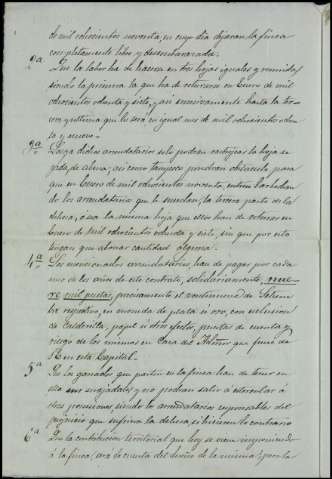 de mil ochocientos noventa, en cuyo dia dejaran la finca
completamente libre y desembarazada.
2ª Que la labor ha de hacerse en tres hojas iguales y
siendo la primera la que ha de en Enero de mil
ochocientos ochenta y siete, y asi sucesivamente hasta la
y ultima que lo será en igual mes de mil ochocientos ochen-
ta y nueve.
3ª dichos arrendatarios solo podran la hoja
de labor, asi como tampoco pondran obstáculo para
que en Enero de mil ochocientos noventa, entren
de los arrendatarios que le sucedan, la tercera parte de la
dehesa, ó sea la misma hoja que estos han de en
Enero de mil ochocientos ochenta y siete, sin que por esto
tengan que abonar cantidad alguna.
4ª Los mencionados arrendatarios, han de pagar por cada
uno de los años de este contrato, solidariamente, nue-
ve mil pesetas, precisamente el de
respectivo, en moneda de plata ú oro, con exclusion
de calderilla, papel ú otros efectos, puestas de cuenta y
riesgo de los mismos en Casa del Señor que firma
en esta Capital.
5ª Que los ganados que pasten en la finca han de tener en
ella sus majadales y no podran salir á estercolar á
otras posesiones, siendo los arrendatarios responsables del
perjuicio que sufra la dehesa si hicieren lo contrario.
6ª Que la contribucion territorial que hoy se viene imponiendo
á la finca, será de cuenta del dueño de la misma; pero la